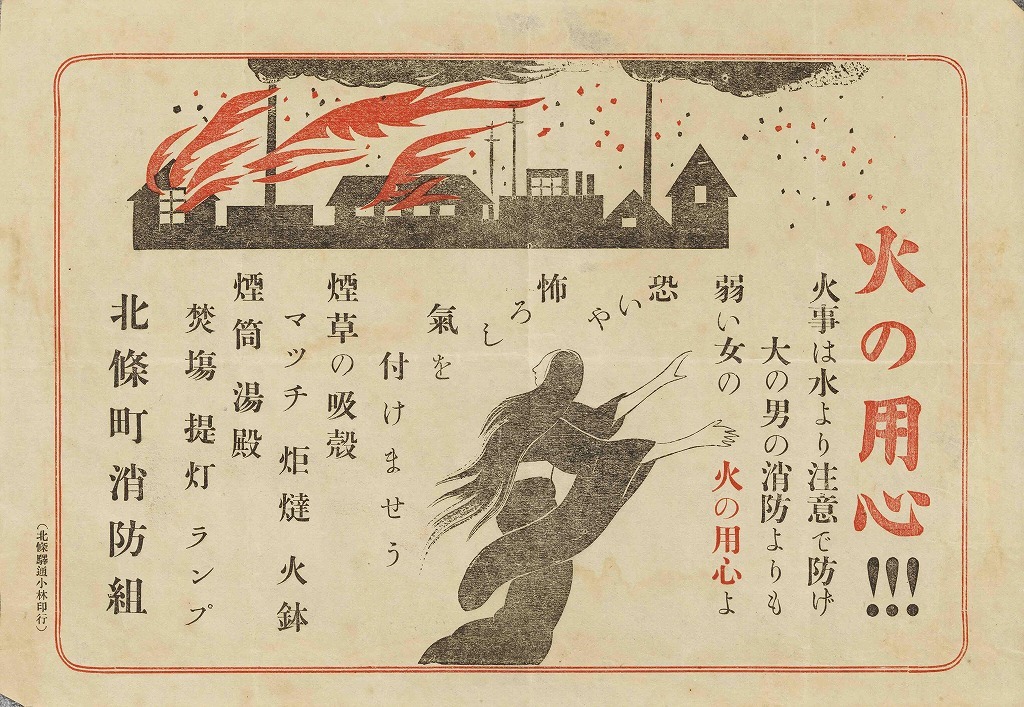 火の用心!!!
火事は水より注意で防げ
大の男の消防よりも
弱い女の火の用心よ
恐いや
怖ろし
氣を
付けませう
煙草の吸殻
マッチ 炬燵 火鉢
煙筒 湯殿
焚塲 提灯 ランプ
北條町消防組
(北條驛通小林印行)